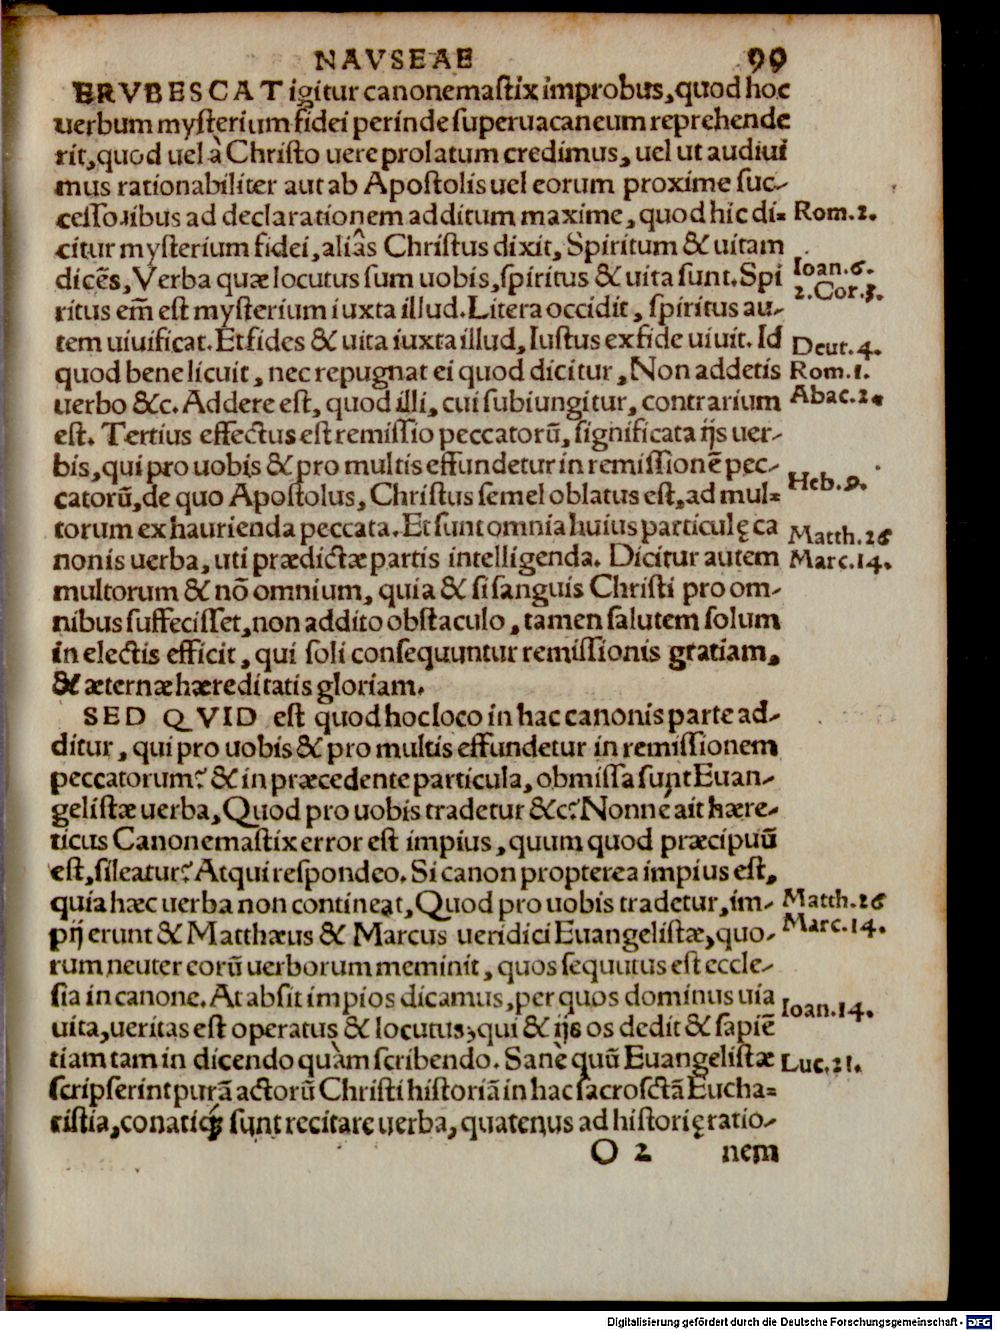 NAVSEAE 99
ERVBESCAT igitur canonemastix improbus, quod hoc
uerbum mysterium fidei perinde superuacaneum reprehende
rit, quod uel à Christo uere prolatum credimus, uel ut audiui
mus rationabiliter aut ab Apostolis uel eorum proxime suc-
cessoribus ad declarationem additum maxime, quod hic di= Rom.2.
citur mysterium fidei, aliâs Christus dixit, Spiritum & uitam
dicẽs, Verba quæ locutus sum uobis, spiritus & uita sunt. Spi Ioan.6.
ritus em̃ est mysterium iuxta illud. Litera occidit, spiritus au- 2.Cor.3.
tem uiuificat. Et fides & uita iuxta illud, Iustus ex fide uiuit. Id Deut.4.
quod bene licuit, nec repugnat ei quod dicitur, Non addetis Rom.1.
uerbo &c. Addere est, quod illi, cui subiungitur, contrarium Abac.2.
est. Tertius effectus est remissio peccatorũ, significata ijs uer-
bis, qui pro uobis & pro multis effundetur in remissionẽ pec- Heb.9.
catorũ, de quo Apostolus, Christus semel oblatus est, ad mul=
torum exhaurienda peccata. Et sunt omnia huius particulę ca Matth.26
nonis uerba, uti prædictæ partis intelligenda. Dicitur autem Marc.14.
multorum & nõ omnium, quia & si sanguis Christi pro om-
nibus suffecisset, non addito obstaculo, tamen salutem solum
in electis efficit, qui soli consequuntur remissionis gratiam,
& æternæ hæreditatis gloriam.
SED QVID est quod hoc loco in hac canonis parte ad-
ditur, qui pro uobis & pro multis effundetur in remissionem
peccatorum? & in præcedente particula, obmissa sunt Euan-
gelistæ uerba, Quod pro uobis tradetur &c? Nonné ait hære-
ticus Canonemastix error est impius, quum quod præcipuũ
est, sileatur? Atqui respondeo. Si canon propterea impius est,
quia hæc uerba non contineat, Quod pro uobis tradetur, im- Matth.26
pij erunt & Matthæus & Marcus ueridici Euangelistæ, quo- Marc.14.
rum neuter eorũ uerborum meminit, quos sequutus est eccle-
sia in canone. At absit impios dicamus, per quos dominus uia Ioan.14.
uita, ueritas est operatus & locutus, qui & ijs os dedit & sapiẽ
tiam tam in dicendo quàm scribendo. Sanè quũ Euangelistæ Luc.21.
scripserint purã actorũ Christi historiã in hac sacrosctã Eucha=
ristia, conatiq́; sunt recitare uerba, quatenus ad historię ratio-
O 2 nem
Digitalisierung gefördert durch die Deutsche Forschungsgemeinschaft - DFG